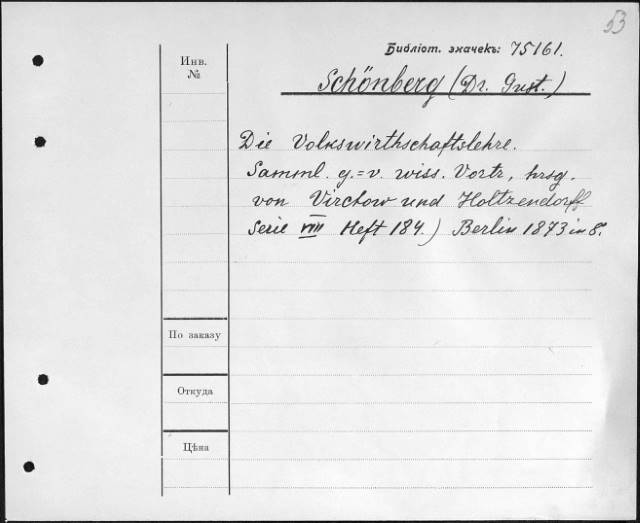 53
Библіот. значекъ: 75161.
Инв.
№
Schönberg (Dr. Gust.)
Die Volkswirthschaftslehre.
Samml. g.=v. wiss. Vortr, hrsg.
von Virchow und Holtzendorff
Serie VIII Heft 184.) Berlin 1873 in 8°.
По заказу
Откуда
Цѣна